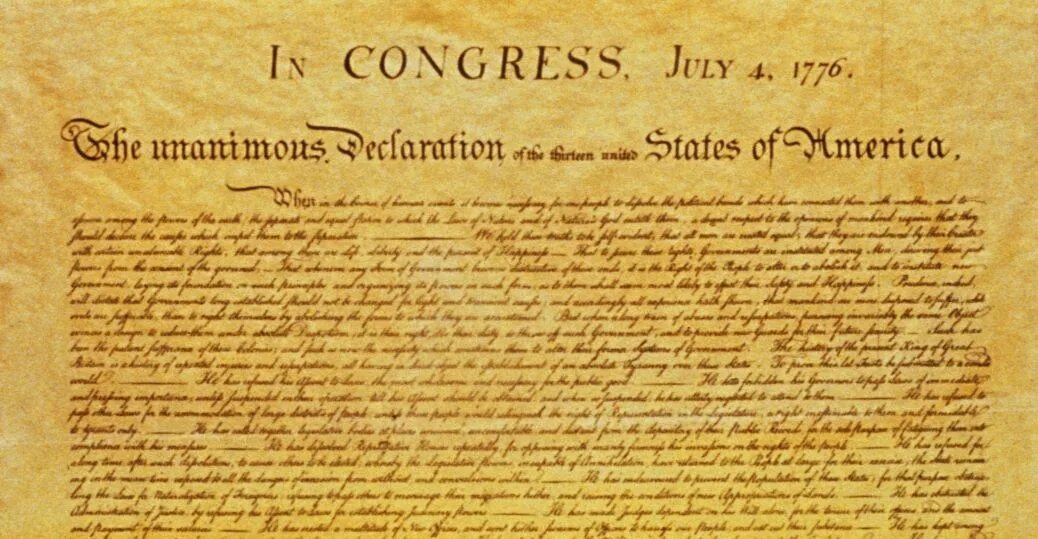 In CONGRESS, July 4, 1776.
The unanimous Declaration of the thirteen united States of America,
When in the Course of human events it becomes necessary for one people to dissolve the political bands which have connected them with another, and to
assume among the powers of the earth, the separate and equal station to which the Laws of Nature and of Nature's God entitle them, a decent respect to the opinions of mankind requires that they
should declare the causes which impel them to the separation. — We hold these truths to be self-evident, that all men are created equal, that they are endowed by their Creator
with certain unalienable Rights, that among these are Life, Liberty and the pursuit of Happiness. — That to secure these rights, Governments are instituted among Men, deriving their just
powers from the consent of the governed, — That whenever any Form of Government becomes destructive of these ends, it is the Right of the People to alter or to abolish it, and to institute new
Government, laying its foundation on such principles and organizing its powers in such form, as to them shall seem most likely to effect their Safety and Happiness. Prudence, indeed,
will dictate that Governments long established should not be changed for light and transient causes; and accordingly all experience hath shewn, that mankind are more disposed to suffer, while
evils are sufferable, than to right themselves by abolishing the forms to which they are accustomed. But when a long train of abuses and usurpations, pursuing invariably the same Object
evinces a design to reduce them under absolute Despotism, it is their right, it is their duty, to throw off such Government, and to provide new Guards for their future security. — Such has
been the patient sufferance of these Colonies; and such is now the necessity which constrains them to alter their former Systems of Government. The history of the present King of Great
Britain is a history of repeated injuries and usurpations, all having in direct object the establishment of an absolute Tyranny over these States. To prove this, let Facts be submitted to a candid
world. — He has refused his Assent to Laws, the most wholesome and necessary for the public good. — He has forbidden his Governors to pass Laws of immediate
and pressing importance, unless suspended in their operation till his Assent should be obtained; and when so suspended, he has utterly neglected to attend to them. — He has refused to
pass other Laws for the accommodation of large districts of people, unless those people would relinquish the right of Representation in the Legislature, a right inestimable to them and formidable
to tyrants only. — He has called together legislative bodies at places unusual, uncomfortable, and distant from the depository of their Public Records, for the sole purpose of fatiguing them into
compliance with his measures. — He has dissolved Representative Houses repeatedly, for opposing with manly firmness his invasions on the rights of the people. — He has refused for
a long time, after such dissolutions, to cause others to be elected; whereby the Legislative powers, incapable of Annihilation, have returned to the People at large for their exercise; the State remain-
ing in the mean time exposed to all the dangers of invasion from without, and convulsions within. — He has endeavoured to prevent the Population of these States; for that purpose obstruc-
ting the Laws for Naturalization of Foreigners; refusing to pass others to encourage their migrations hither, and raising the conditions of new Appropriations of Lands. — He has obstructed the
Administration of Justice, by refusing his Assent to Laws for establishing Judiciary powers. — He has made Judges dependent on his Will alone, for the tenure of their offices, and the amount
and payment of their salaries. — He has erected a multitude of New Offices, and sent hither swarms of Officers to harrass our People, and eat out their substance. — He has kept among